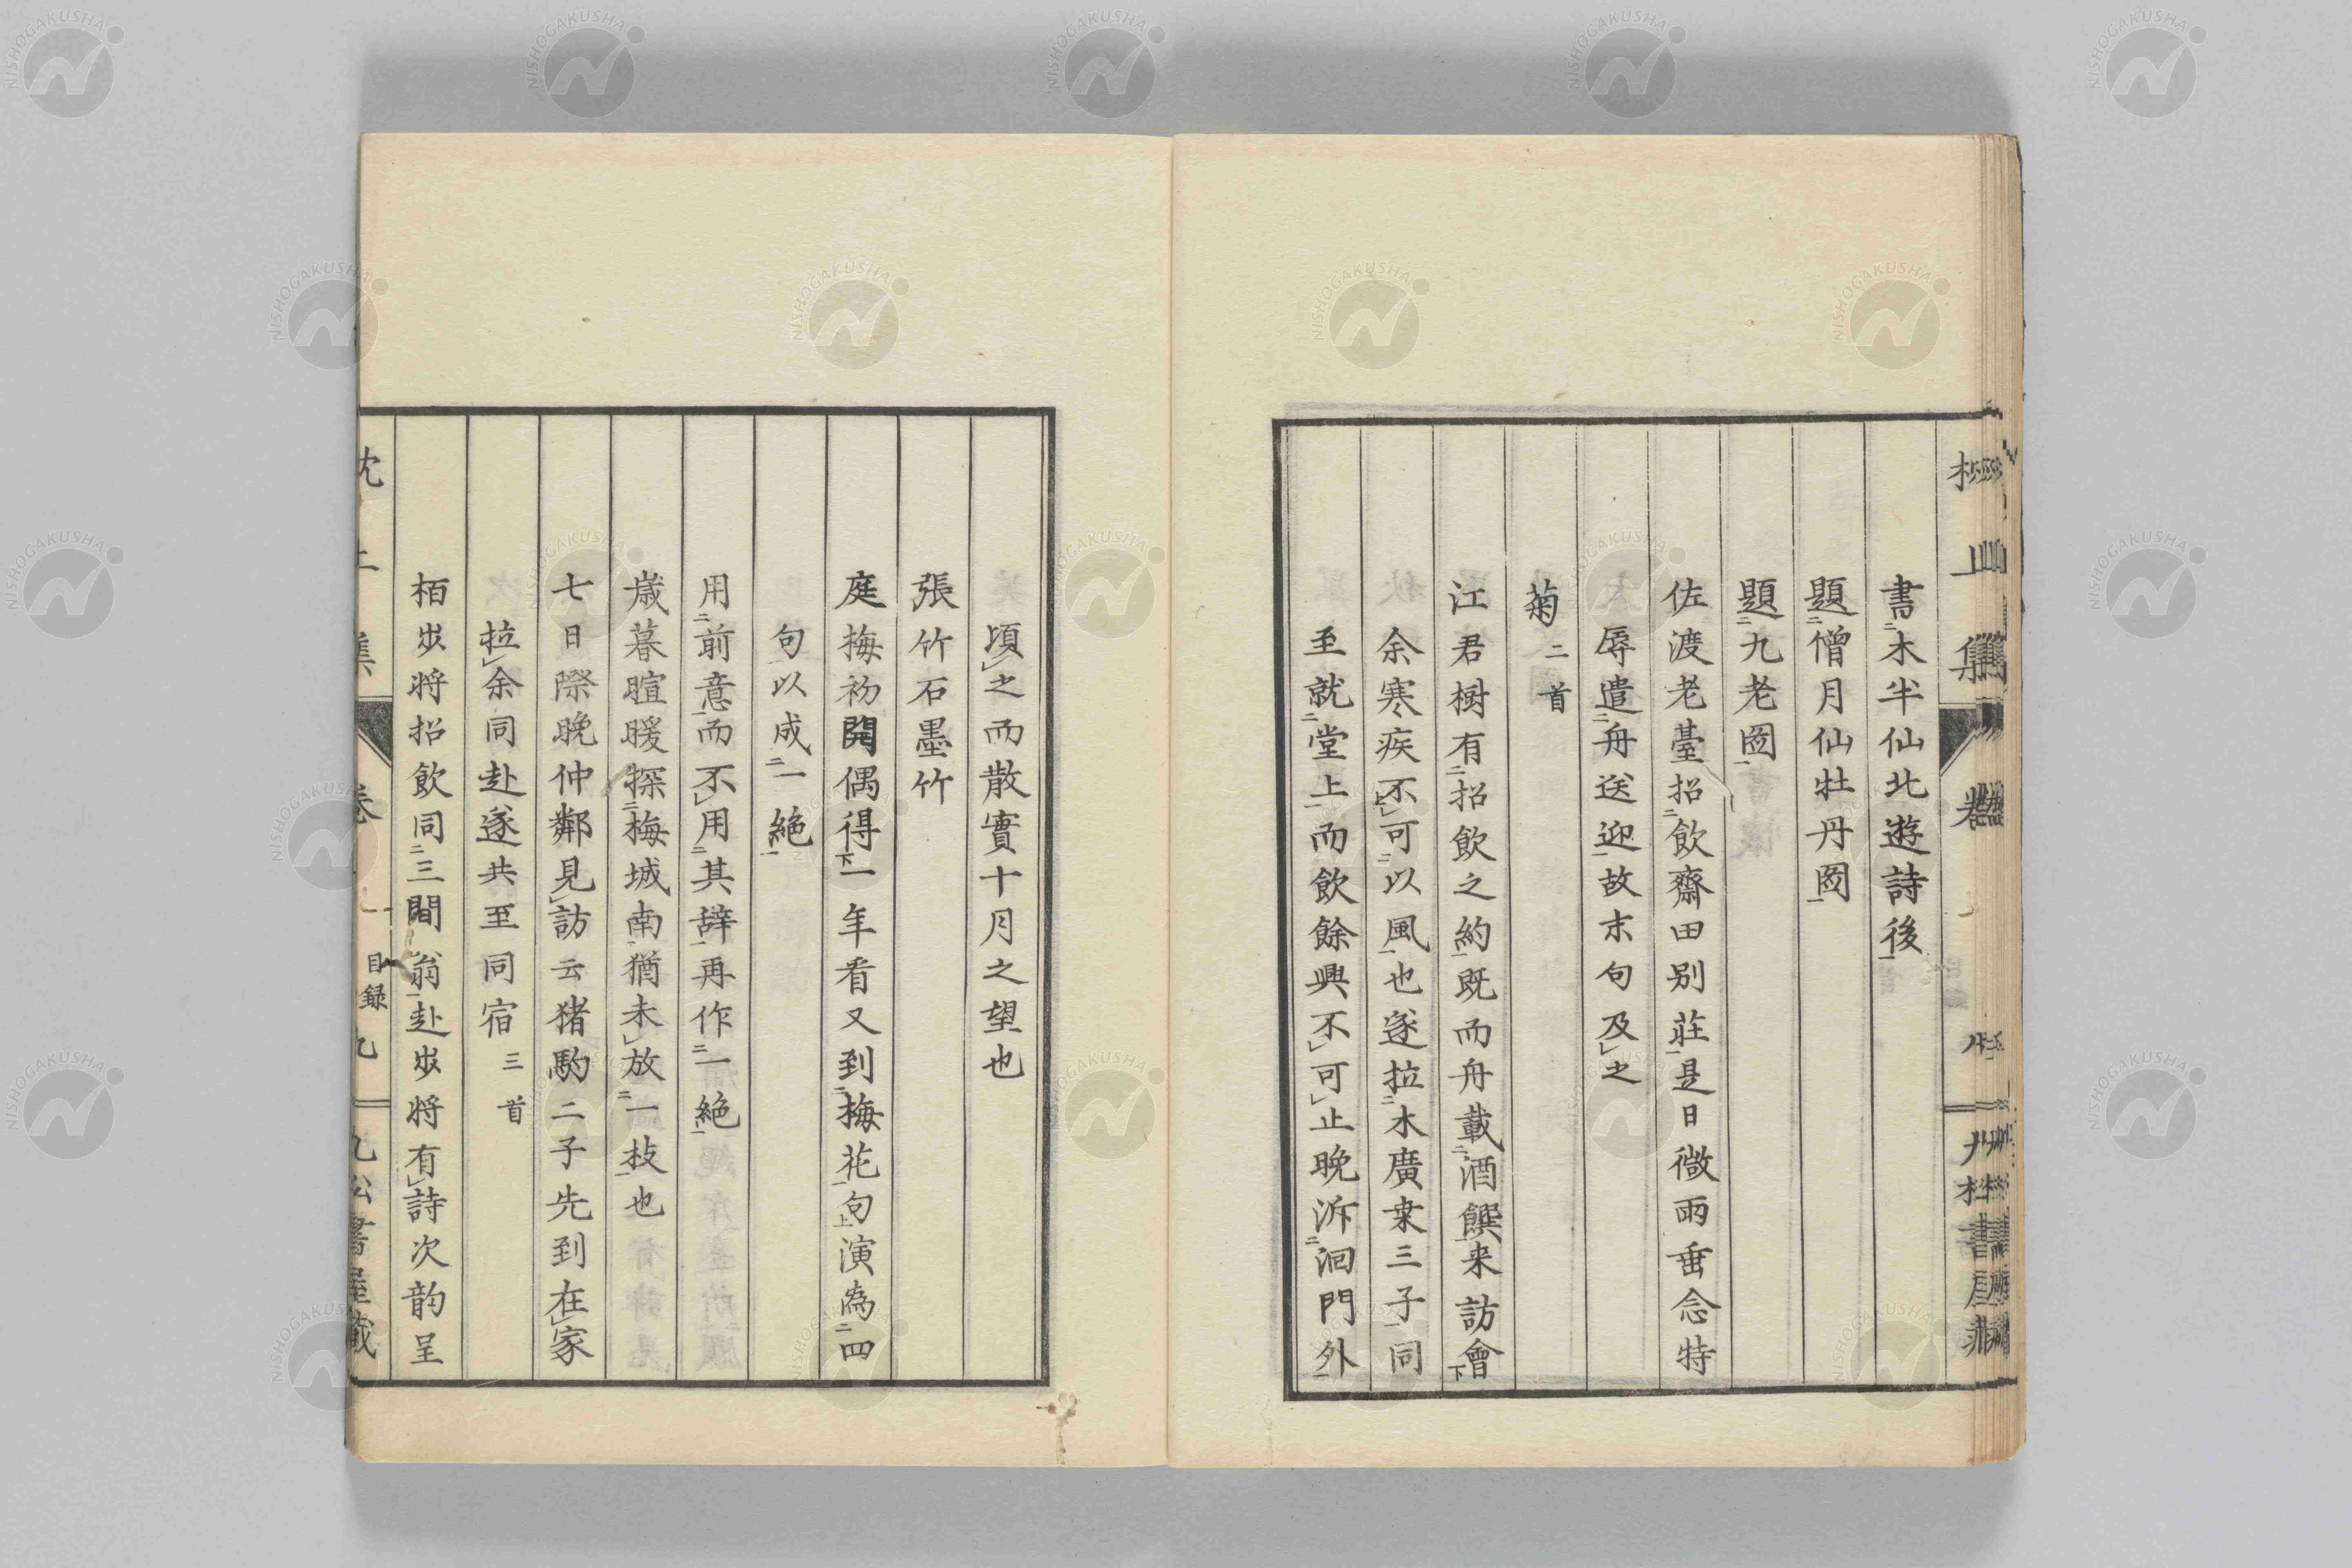 書木半仙北遊詩後
題僧月仙牡丹圖
題九老圖
佐渡老臺招飲齋田別莊是日微雨垂念特
辱遣舟送迎故末句及之
菊 二首
江君樹有招飲之約既而舟載酒饌来訪會
余寒疾不可以風也遂拉木廣桒三子同
至就堂上而飲餘興不可止晚泝洄門外
頃之而散實十月之望也
張竹石墨竹
庭梅初開偶得一年看又到梅花句演為四
句以成一絶
用前意而不用其辞再作一絶
歳暮暄暖探梅城南猶未放一枝也
七日際晚仲鄰見訪云猪駒二子先到在家
拉余同赴遂共至同宿 三首
栢㘽将招飲同三間翁赴㘽将有詩次韵呈
目録
NISHOGAKUSHA